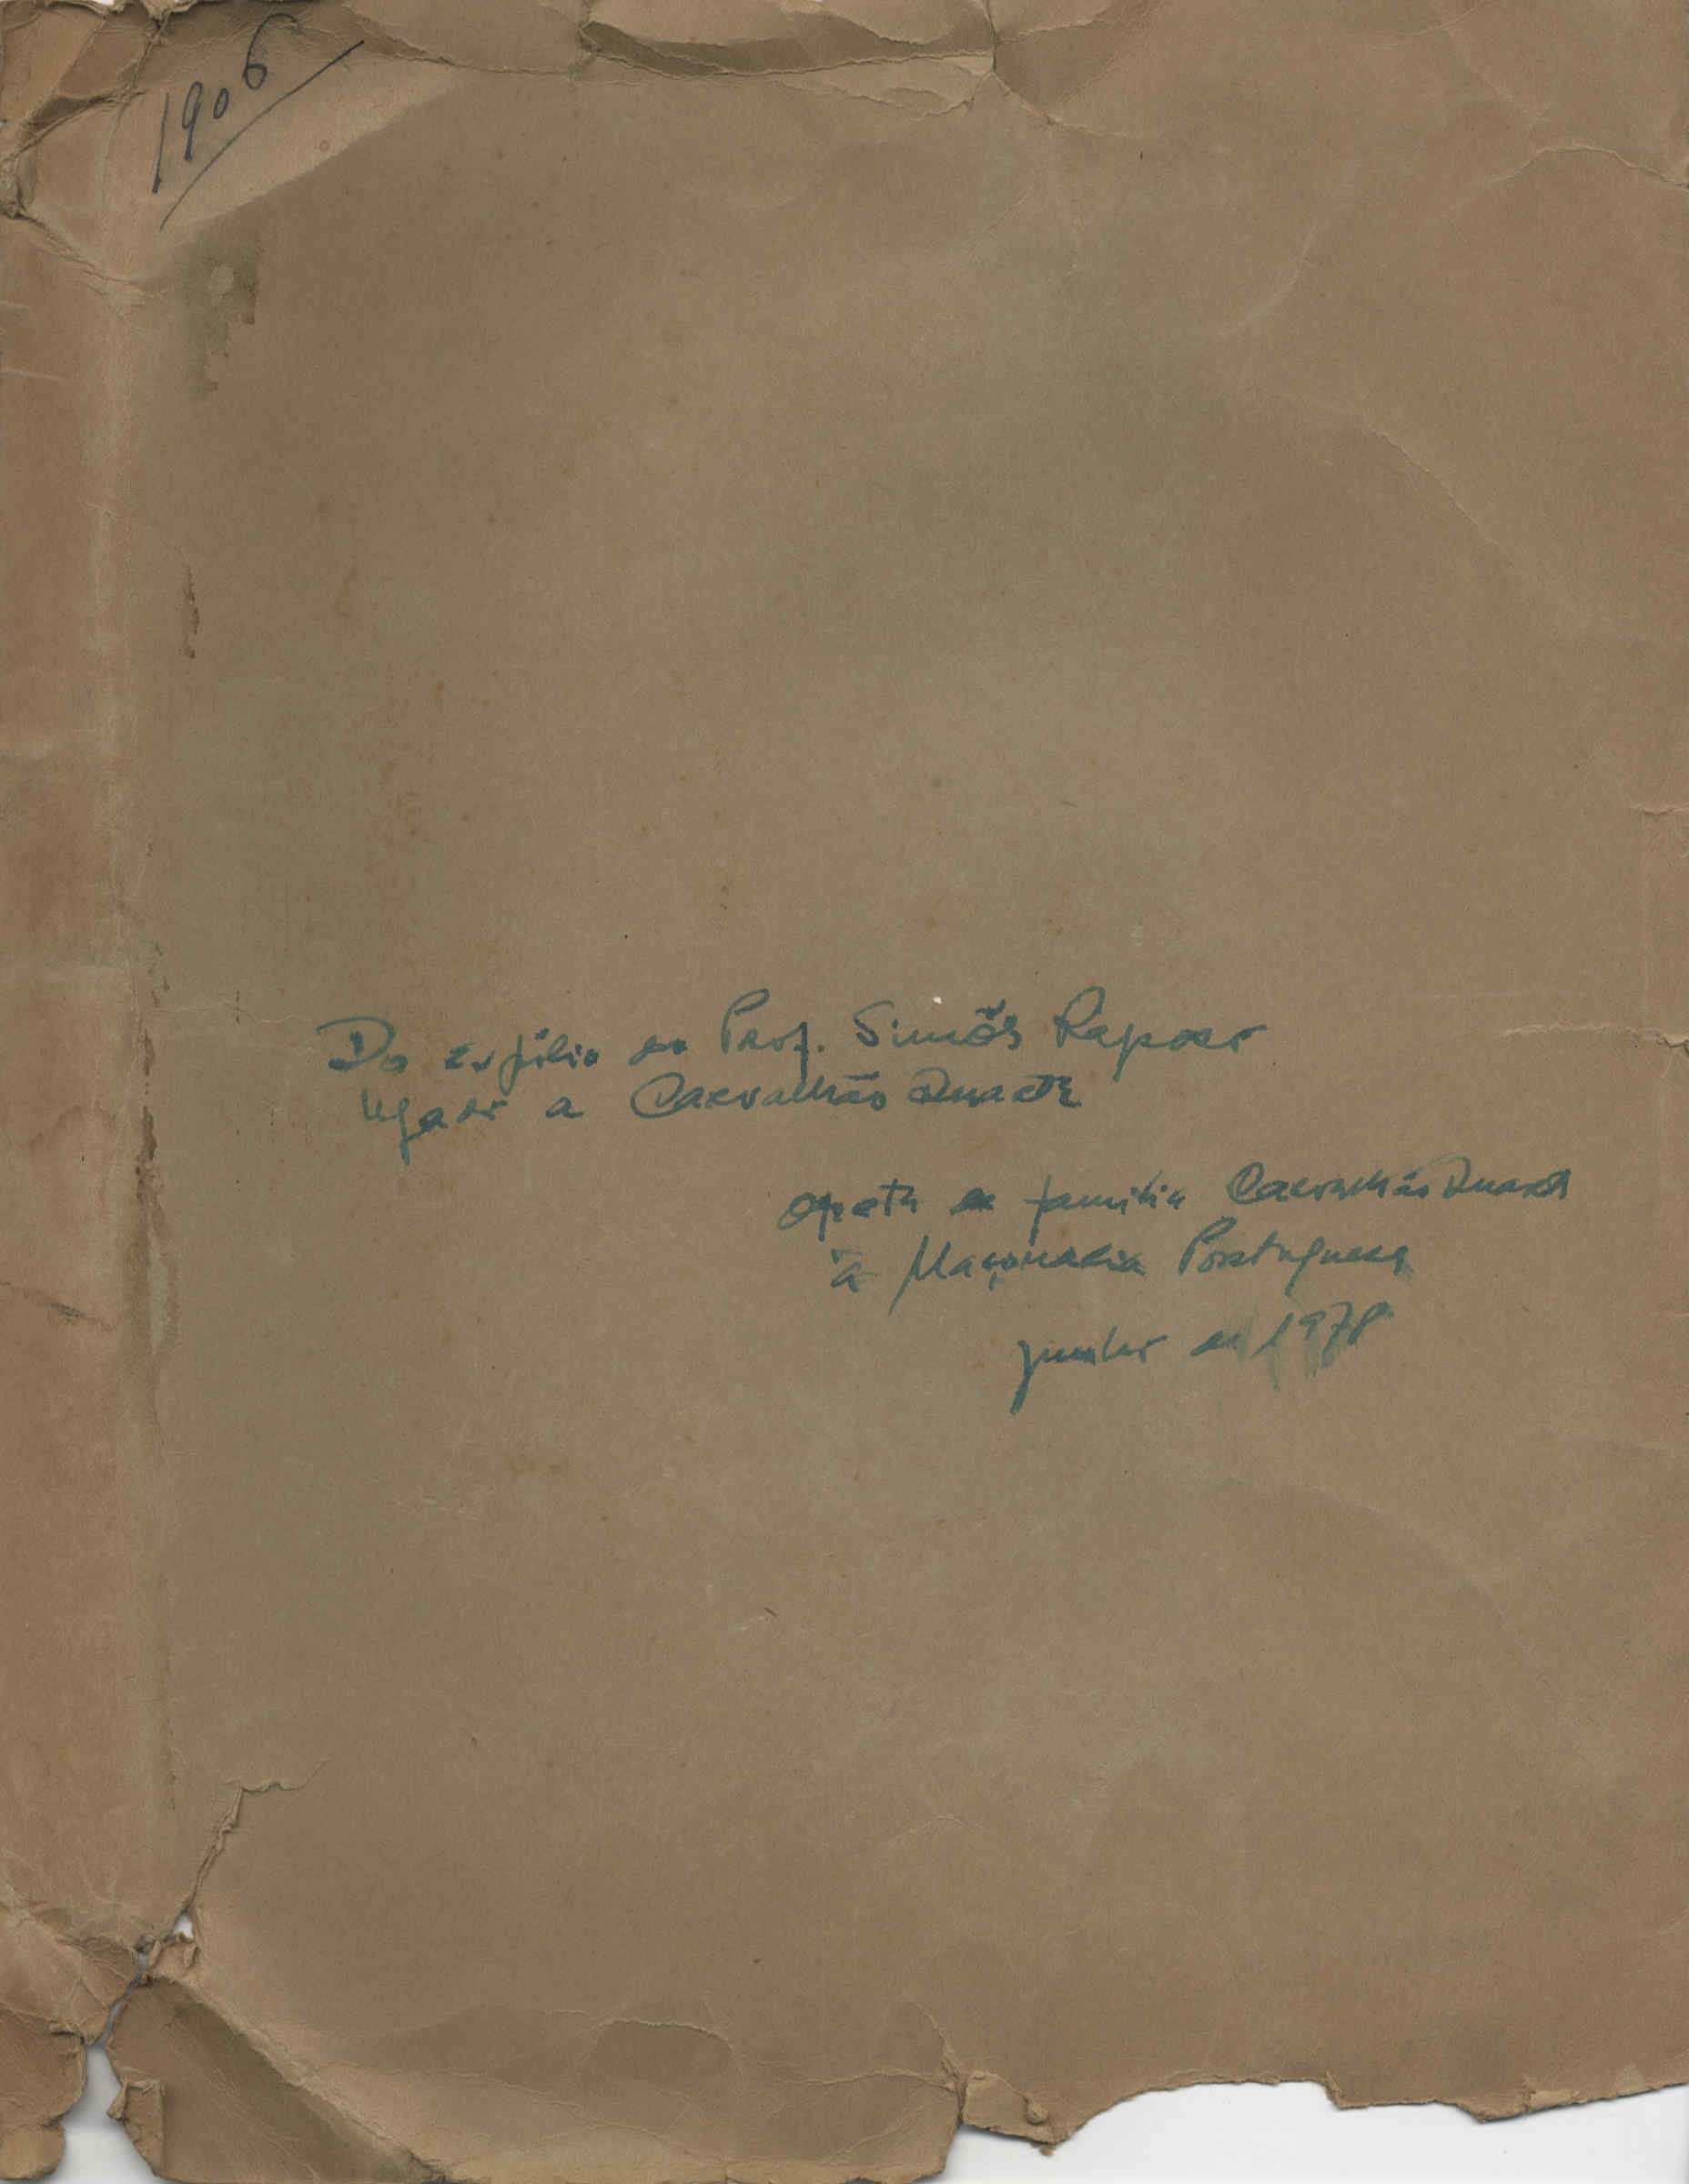 1906
Do espólio do Prof. Simões Raposo
legado a Carvalhão Duarte
oferta da família Carvalhão Duarte
à Maçonaria Portuguesa
junho de 1978